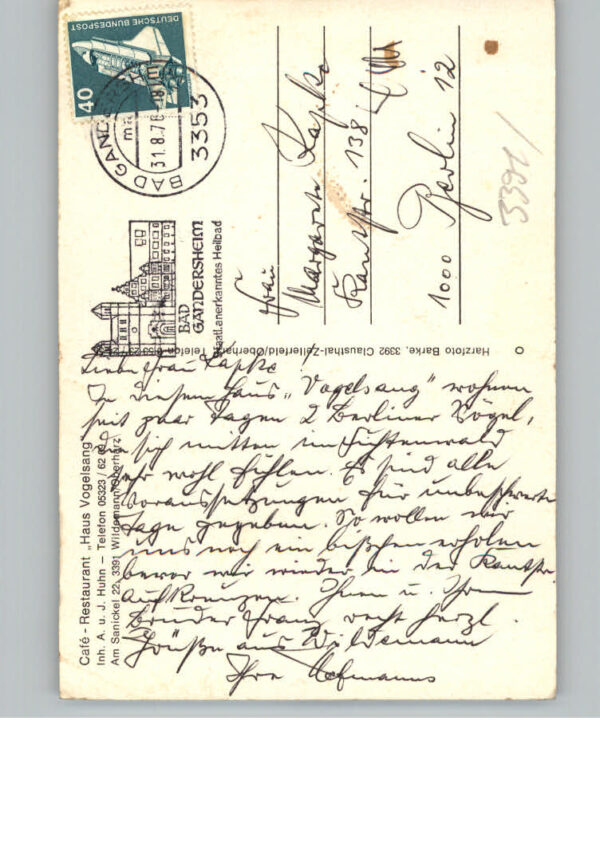 DEUTSCHE BUNDESPOST
40
BAD GANDERSHEIM
31.8.76-18
3353
BAD
GANDERSHEIM
Staatl. anerkanntes Heilbad
Frau
Margarete Kapke
Kantstr. 138
1000 Berlin 12
3391
Harzfoto Barke, 3392 Clausthal-Zellerfeld/Oberharz, Telefon 05323
Café - Restaurant „Haus Vogelsang"
Inh. A. u. J. Huhn — Telefon 05323 / 62
Am Sanickel 22, 3391 Wildemann/Oberharz
Liebe Frau Kapke
In diesem Haus „Vogelsang" wohnen
seit paar Tagen 2 Berliner Vögel,
die sich mitten im Fichtenwald
sehr wohl fühlen. Es sind alle
Voraussetzungen für unbeschwerte
Tage gegeben. So wollen wir
uns noch ein bißchen erholen
bevor wir wieder in der Kantstr.
aufkreuzen. Ihnen u. Ihrem
Bruder Franz recht herzl.
Grüße aus Wildemann
Ihre